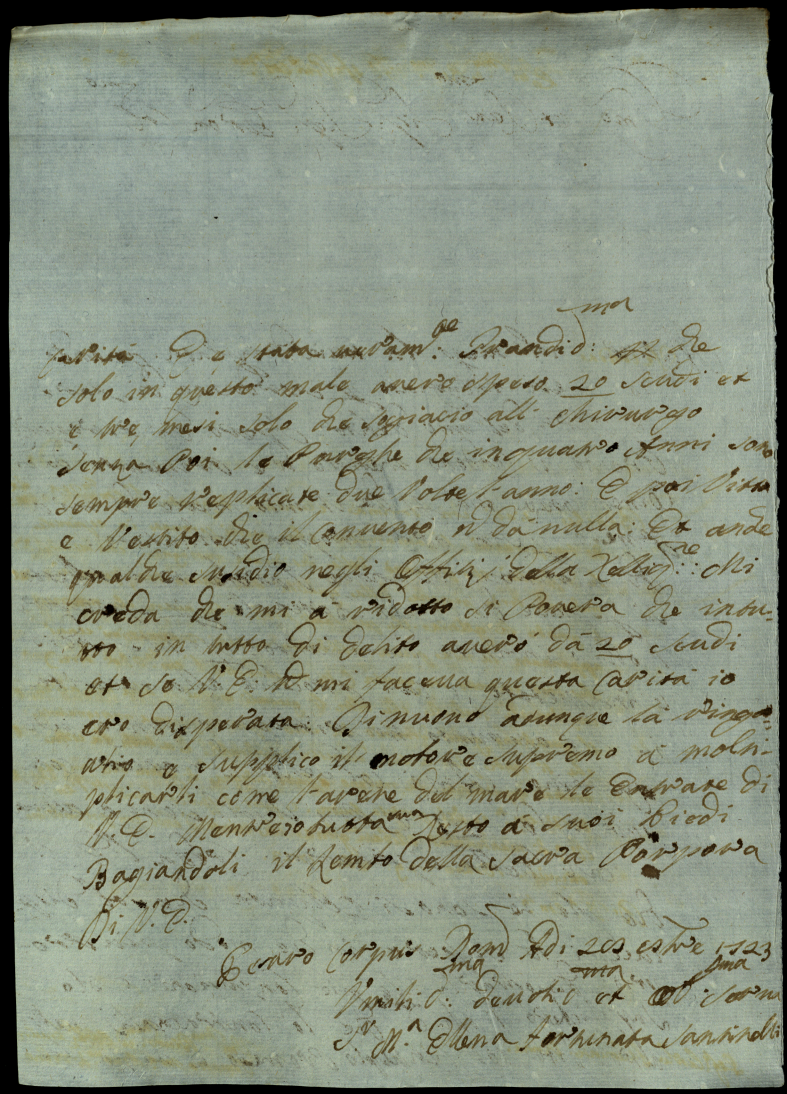 carità E è stata veram:te Grandis:ma che
solo in questo male averò speso 20 scudi et
è tre mesi solo che sogiacio all chirurgo
senza Poi le Purghe che in quatro Anni sono
sempre replicate due Volte l'anno: E poi Vitto
e Vestito che il Convento n dà nulla: Et anche
qualche susidio negli Offitij della Religne: Mi
creda che mi à ridotto si Povera che intu-
tto in tutto di debito averò dà 20 scudi
et se V. E. n mi faceva questa Carità io
ero disperata: Di nuovo adunque la ringra-
atio e supplico il motore supremo à molti-
plicarli come l'arene del mare le Entrate di
V. E. Mentre io tutta Resto à suoi Piedi
Bagiandoli il Lembo della Sacra Porpora
Di V. E.
Pesaro Corpus Dom Adi 20 1723
Umilis:ma devotis:ma et Ob:ma Serva
Sr M.a Ellena Fortunata Santinelli